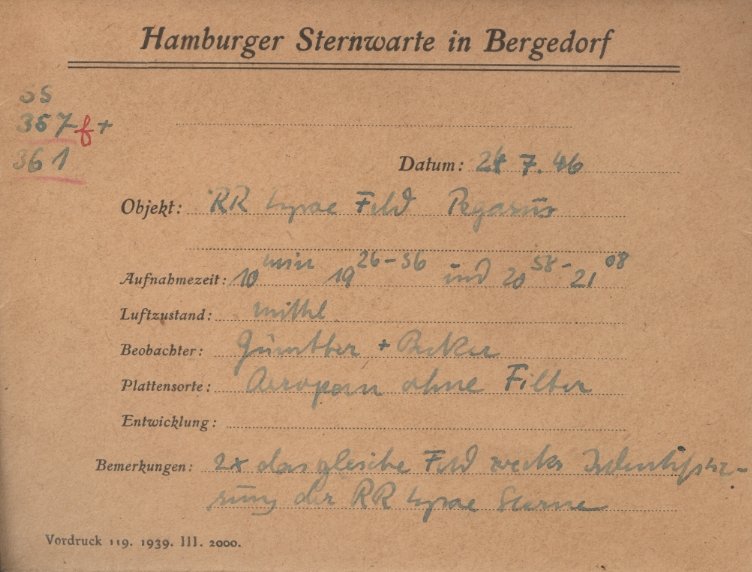 Hamburger Sternwarte in Bergedorf
SS
357 f +
361
Datum: 24 7. 46
Objekt: RR Lyrae Feld Pegasus
Aufnahmezeit: 10 min 19 26-36 und 20 58- 21 08
Luftzustand: mittel
Beobachter: Günther + Becker
Plattensorte: Aeropan ohne Filter
Entwicklung:
Bemerkungen: 2x das gleiche Feld zwecks Identifizie-
rung der RR Lyrae Sterne
Vordruck 119. 1939. III. 2000.